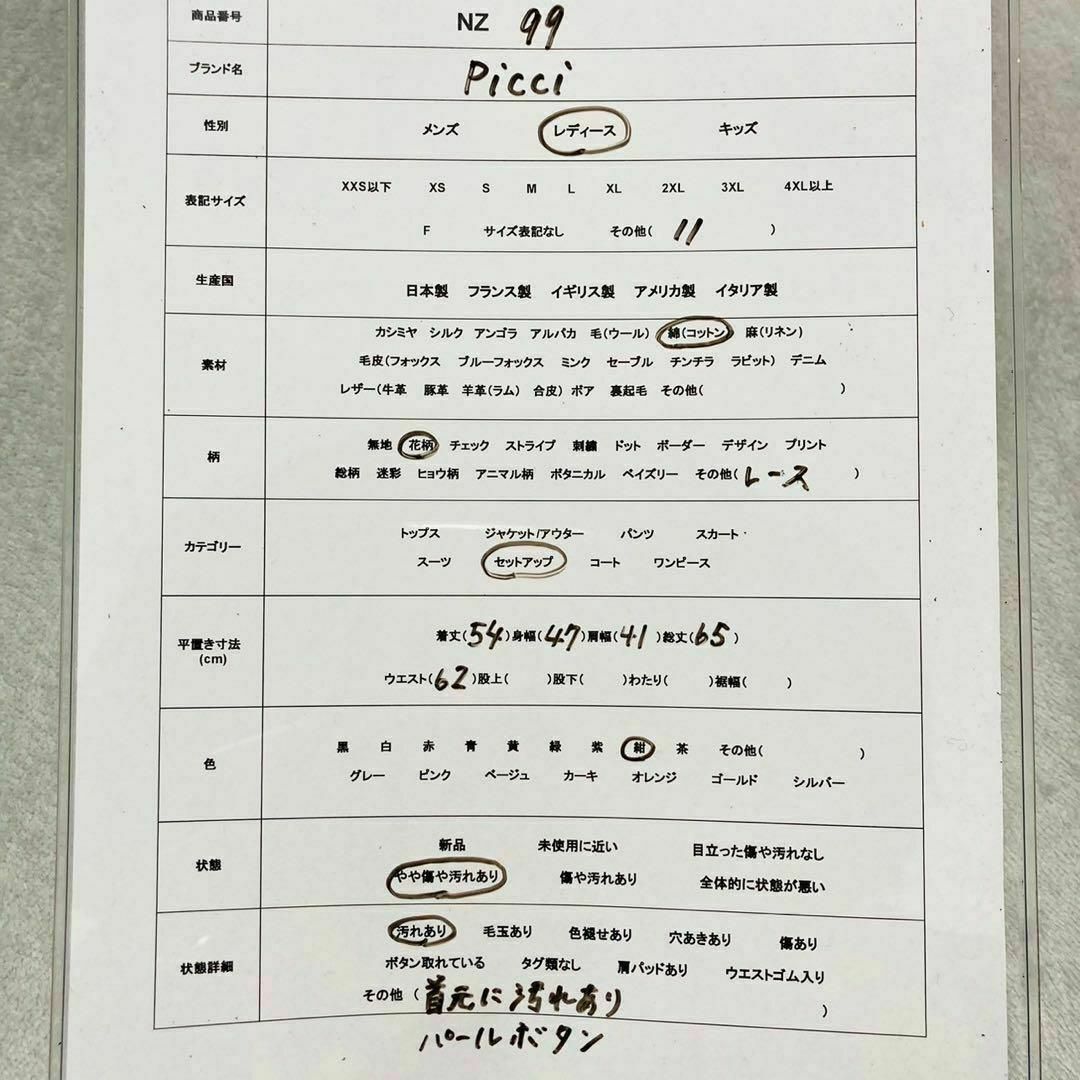 商品番号 NZ 99
ブランド名 Picci
性別 メンズ レディース キッズ
表記サイズ XXS以下 XS S M L XL 2XL 3XL 4XL以上
F サイズ表記なし その他( 11 )
生産国 日本製 フランス製 イギリス製 アメリカ製 イタリア製
素材 カシミヤ シルク アンゴラ アルパカ 毛(ウール) 綿(コットン) 麻(リネン)
毛皮(フォックス ブルーフォックス ミンク セーブル チンチラ ラビット) デニム
レザー(牛革 豚革 羊革(ラム) 合皮) ボア 裏起毛 その他( )
柄 無地 花柄 チェック ストライプ 刺繍 ドット ボーダー デザイン プリント
総柄 迷彩 ヒョウ柄 アニマル柄 ボタニカル ペイズリー その他( レース )
カテゴリー トップス ジャケット/アウター パンツ スカート
スーツ セットアップ コート ワンピース
平置き寸法 (cm) 着丈(54)身幅(47)肩幅(41)総丈(65)
ウエスト(62)股上( )股下( )わたり( )裾幅( )
色 黒 白 赤 青 黄 緑 紫 紺 茶 その他( )
グレー ピンク ベージュ カーキ オレンジ ゴールド シルバー
状態 新品 未使用に近い 目立った傷や汚れなし
やや傷や汚れあり 傷や汚れあり 全体的に状態が悪い
状態詳細 汚れあり 毛玉あり 色褪せあり 穴あきあり 傷あり
ボタン取れている タグ類なし 肩パッドあり ウエストゴム入り
その他 ( 首元に汚れあり )
パールボタン